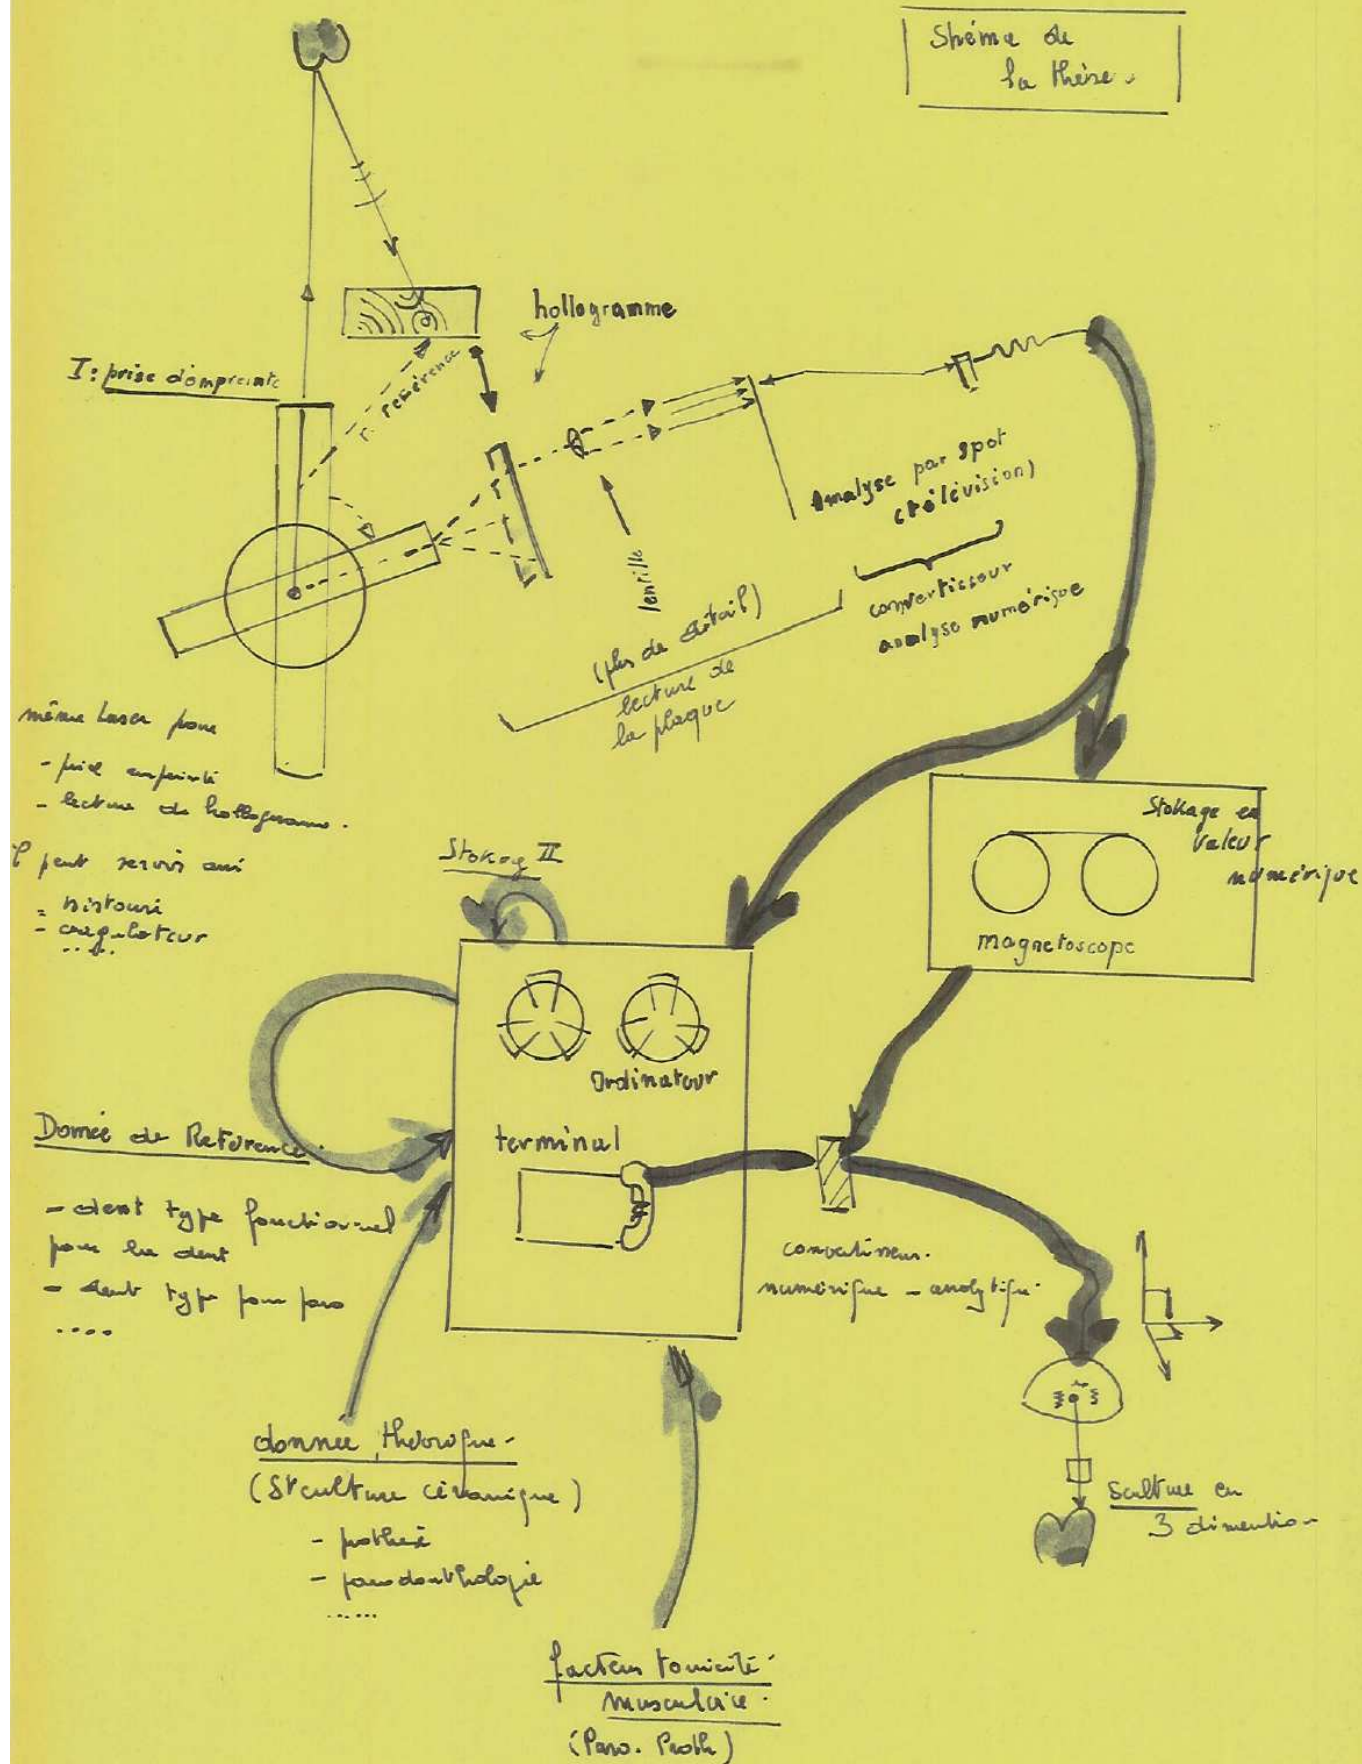 Shéma de
la thèse.
hollogramme
I: prise d'empreinte
r. référence
Analyse par spot
(télévision)
convertisseur
analyse numérique
lentille
(plus de détail)
lecture de
la plaque
même Laser pour
- prise empreinte
- lecture de hollogramme.
peut servir
- bistouri
- coagulateur
.....
Stokag II
Stokage en
Valeur
numérique
magnetoscope
Ordinateur
terminal
Donnée de Reference
- dent type fonctionnel
pour la dent
- dent type pour paro
....
convertisseur.
numérique - analytique
donnée théorique
(Structure céramique)
- prothèse
- parodonthologie
......
Sculture en
3 dimention
facteur tonicité
musculaire.
(Paro. Proth)